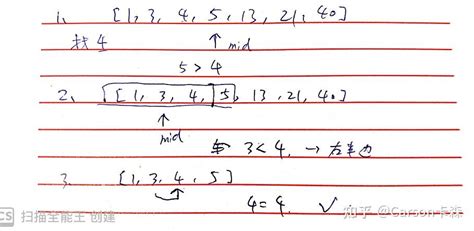 1、 [1, 3, 4, 5, 13, 21, 40]
找 4
mid
5 > 4
2、 [1, 3, 4, 5, 13, 21, 40]
mid
3 < 4, → 右半边
3. [1, 3, 4, 5]
4 = 4. ✓
CS 扫描全能王 创建
知乎 @Carson卡森